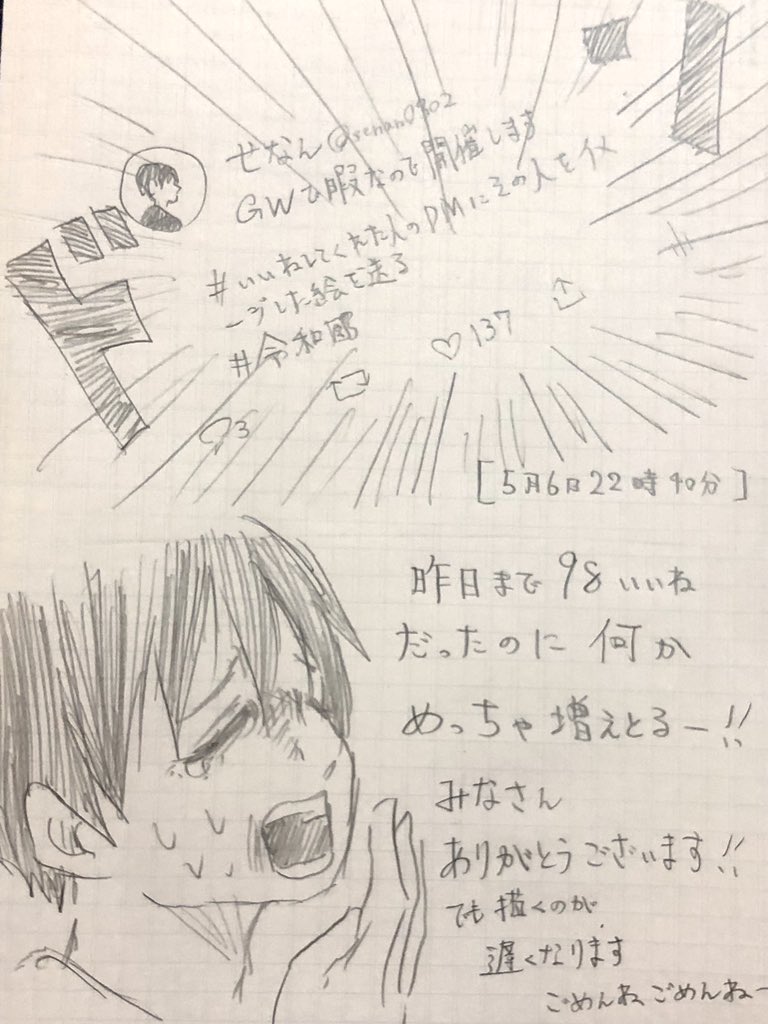 ドーン
せなん@senan0902
GWで暇なので開催します
#いいねしてくれた人のDMにその人をイメ
ージした絵を送る
#令和郎
3
137
[5月6日22時40分]
昨日まで98いいね
だったのに何か
めっちゃ増えとるー!!
みなさん
ありがとうございます!!
でも描くのが
遅くなります
ごめんねごめんねー